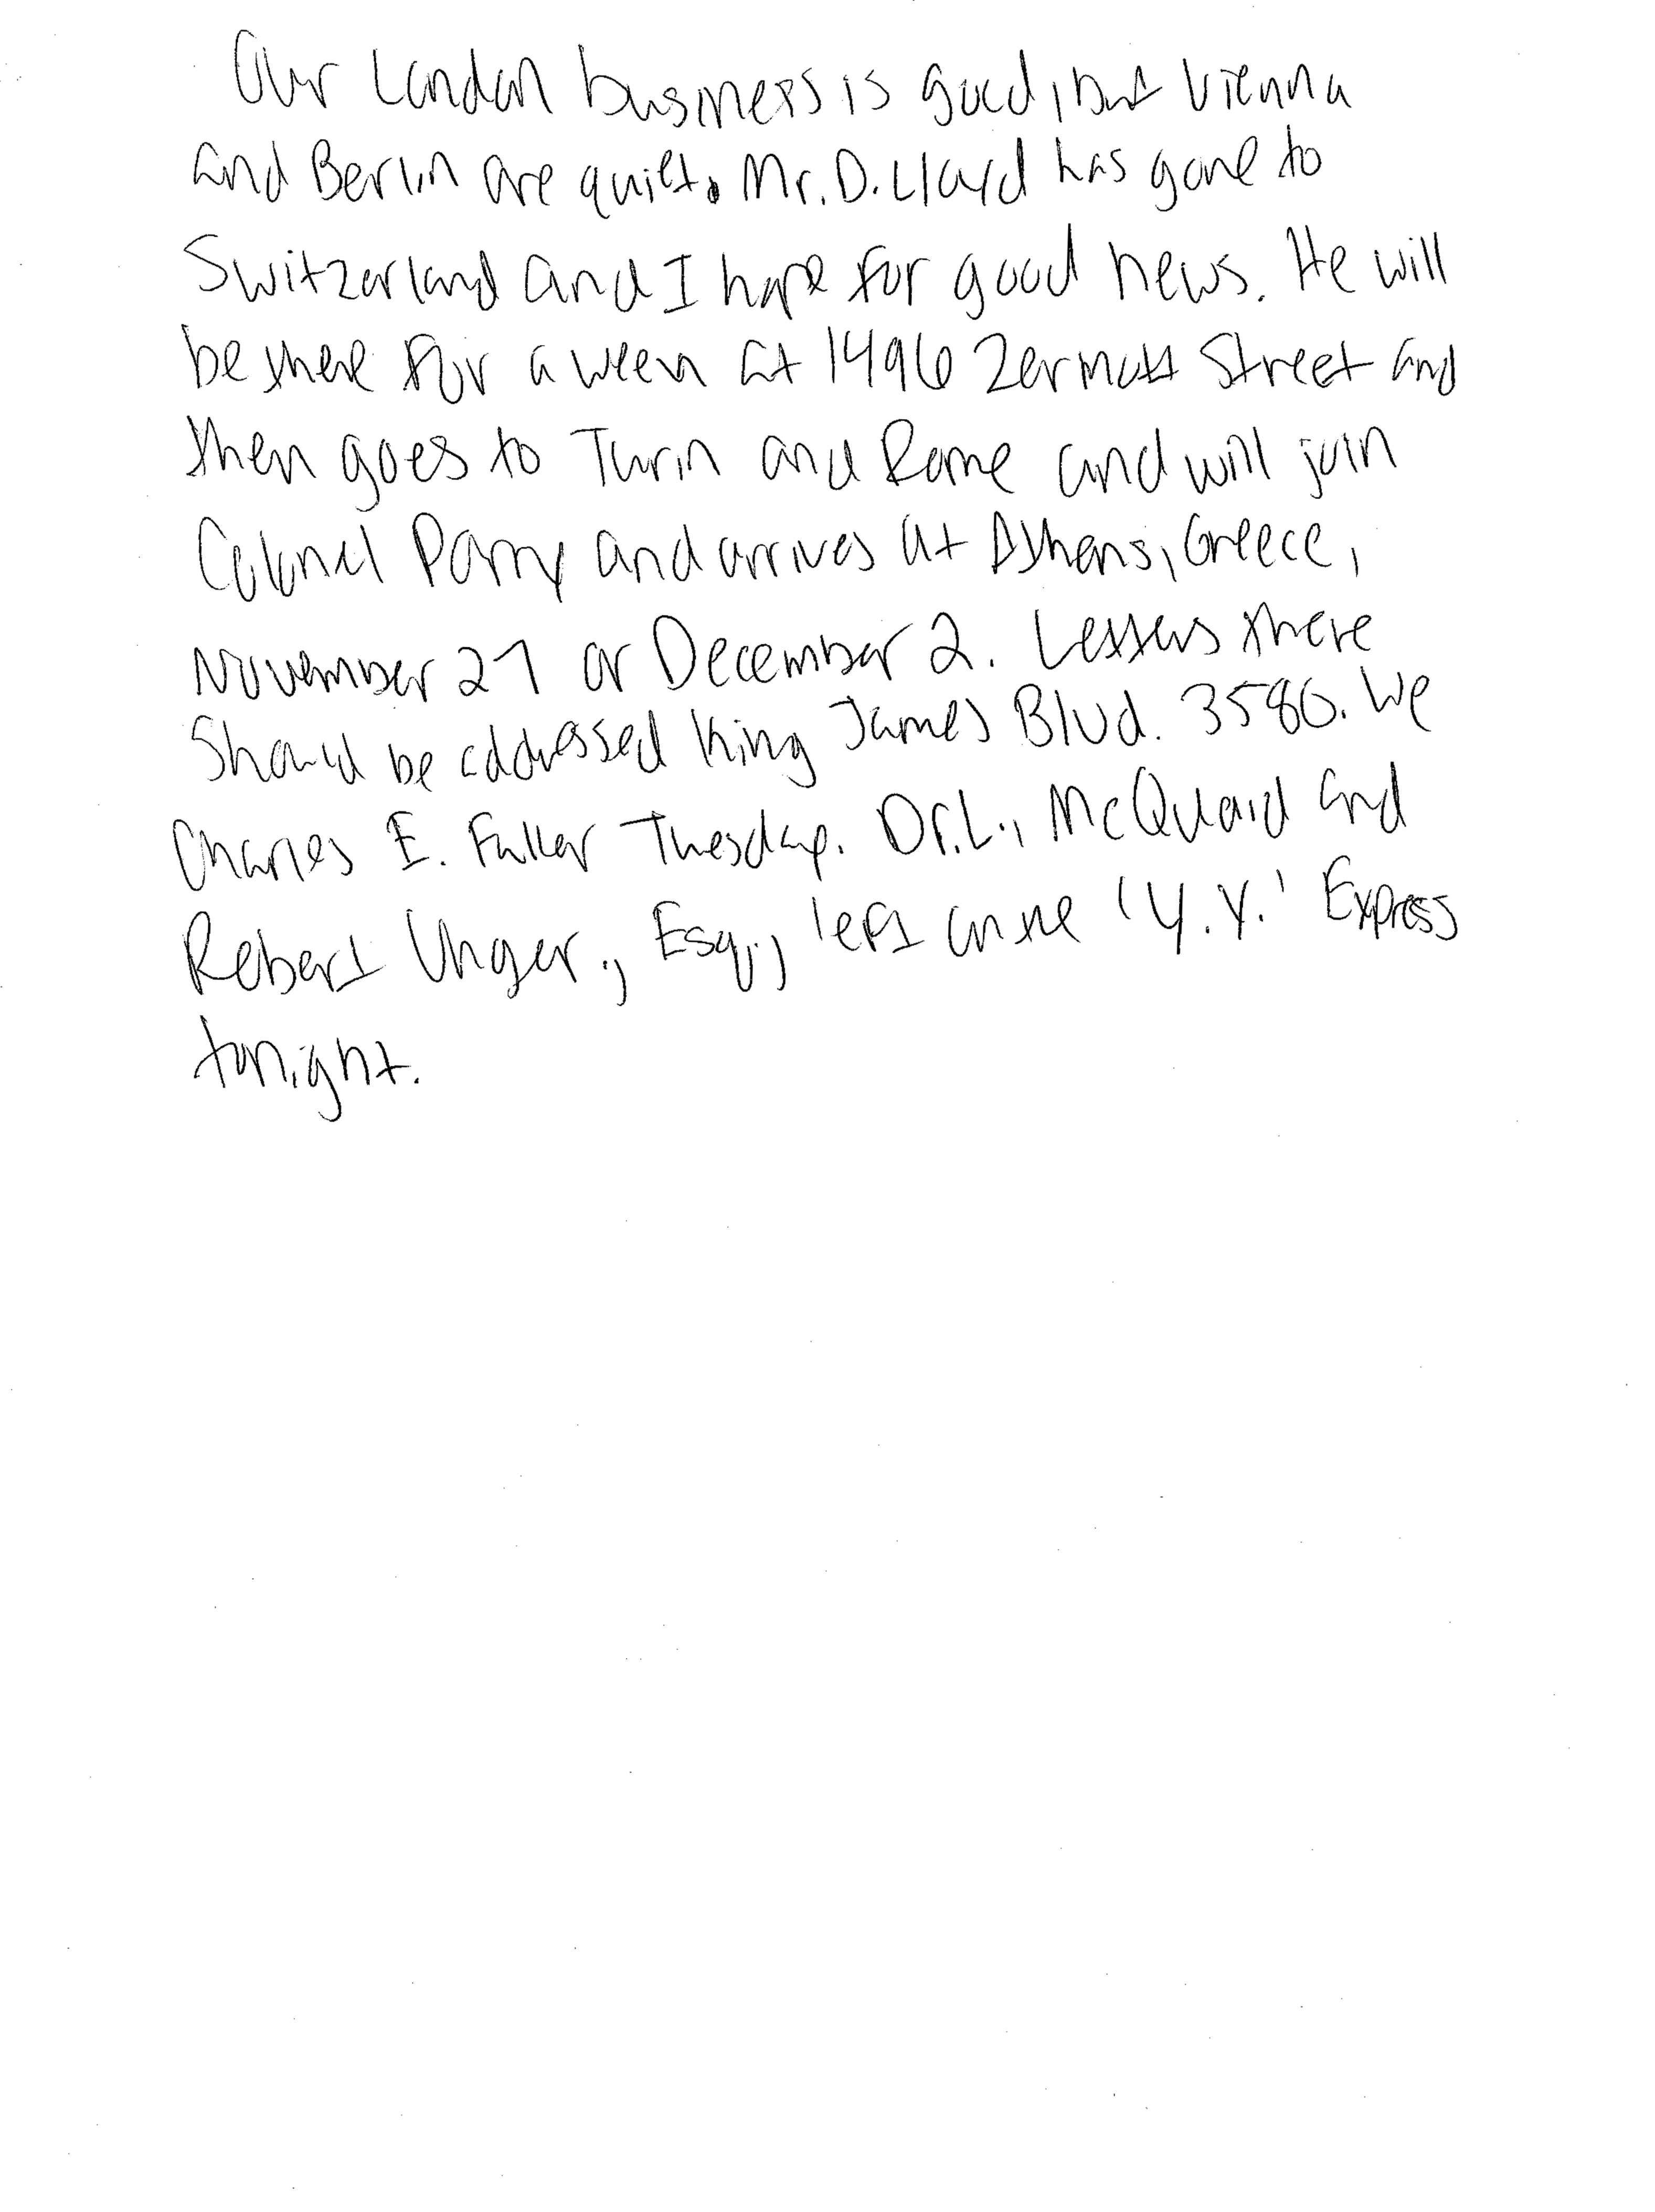 Our London business is good, but Vienna
and Berlin are quiet. Mr. D. Lloyd has gone to
Switzerland and I hope for good news. He will
be there for a week at 1496 Zermott Street and
then goes to Turin and Rome and will join
Colonel Parry and arrives at Athens, Greece,
November 27 or December 2. Letters there
Should be addressed King James Blvd. 3580. We
Charles E. Fuller Tuesday. Dr. L., McQuaid and
Robert Unger., Esq., left on the 'Y.Y.' Express
tonight.